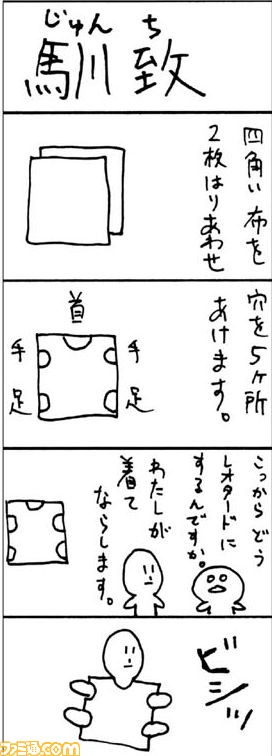 じゅんち
馴致
四角い布を
2枚はりあわせ
穴を5ヶ所
あけます。
首
手 手
足 足
こっからどう
レオタードに
するんですか。
わたしが
着て
ならします。
ビシッ
ファミ通.com